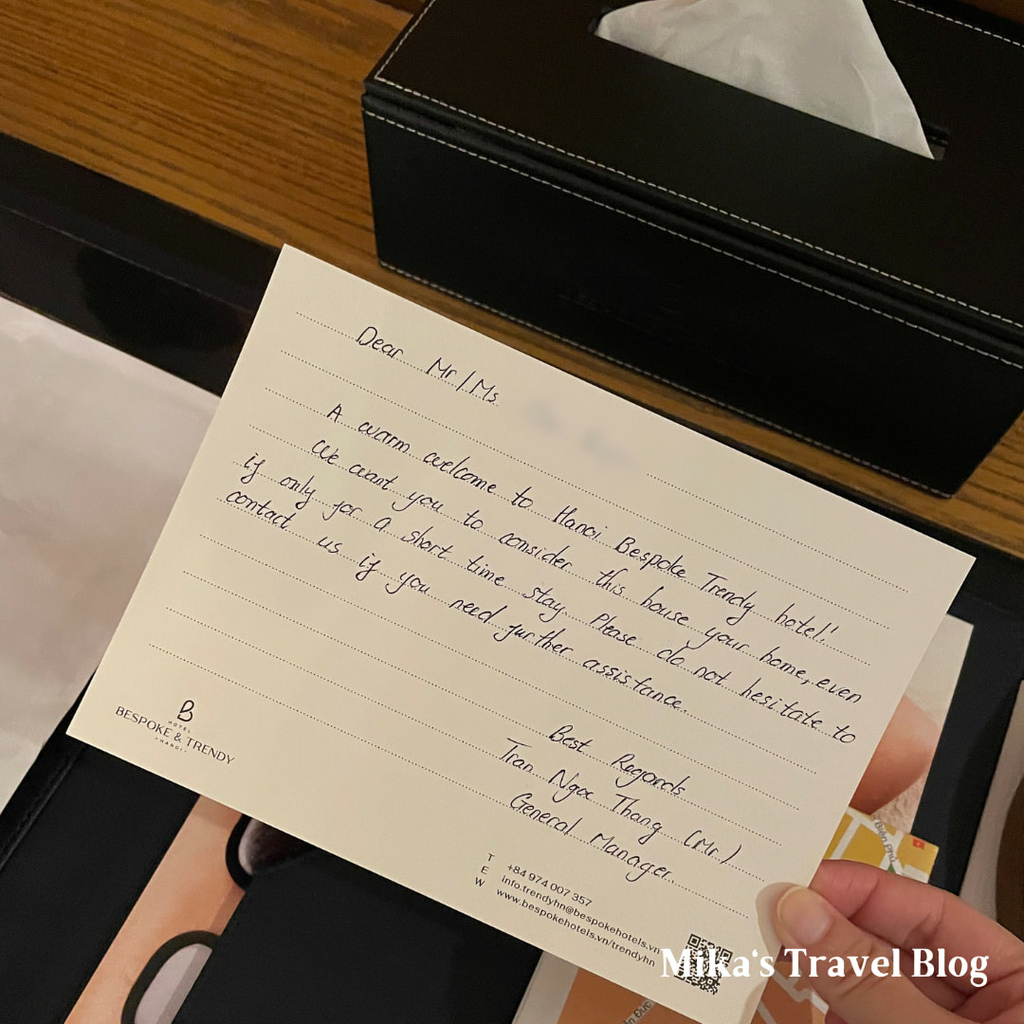 Dear Mr/Ms
A warm welcome to Hanoi Bespoke Trendy hotel!
We want you to consider this house your home, even
if only for a short time stay. Please do not hesitate to
contact us if you need further assistance.
Best Regards
Tran Ngoc Thang (Mr.)
General Manager
B
HOTEL
BESPOKE & TRENDY
HANOI
T +84 974 007 357
E info.trendyhn@bespokehotels.vn
W www.bespokehotels.vn/trendyhn
Mika's Travel Blog